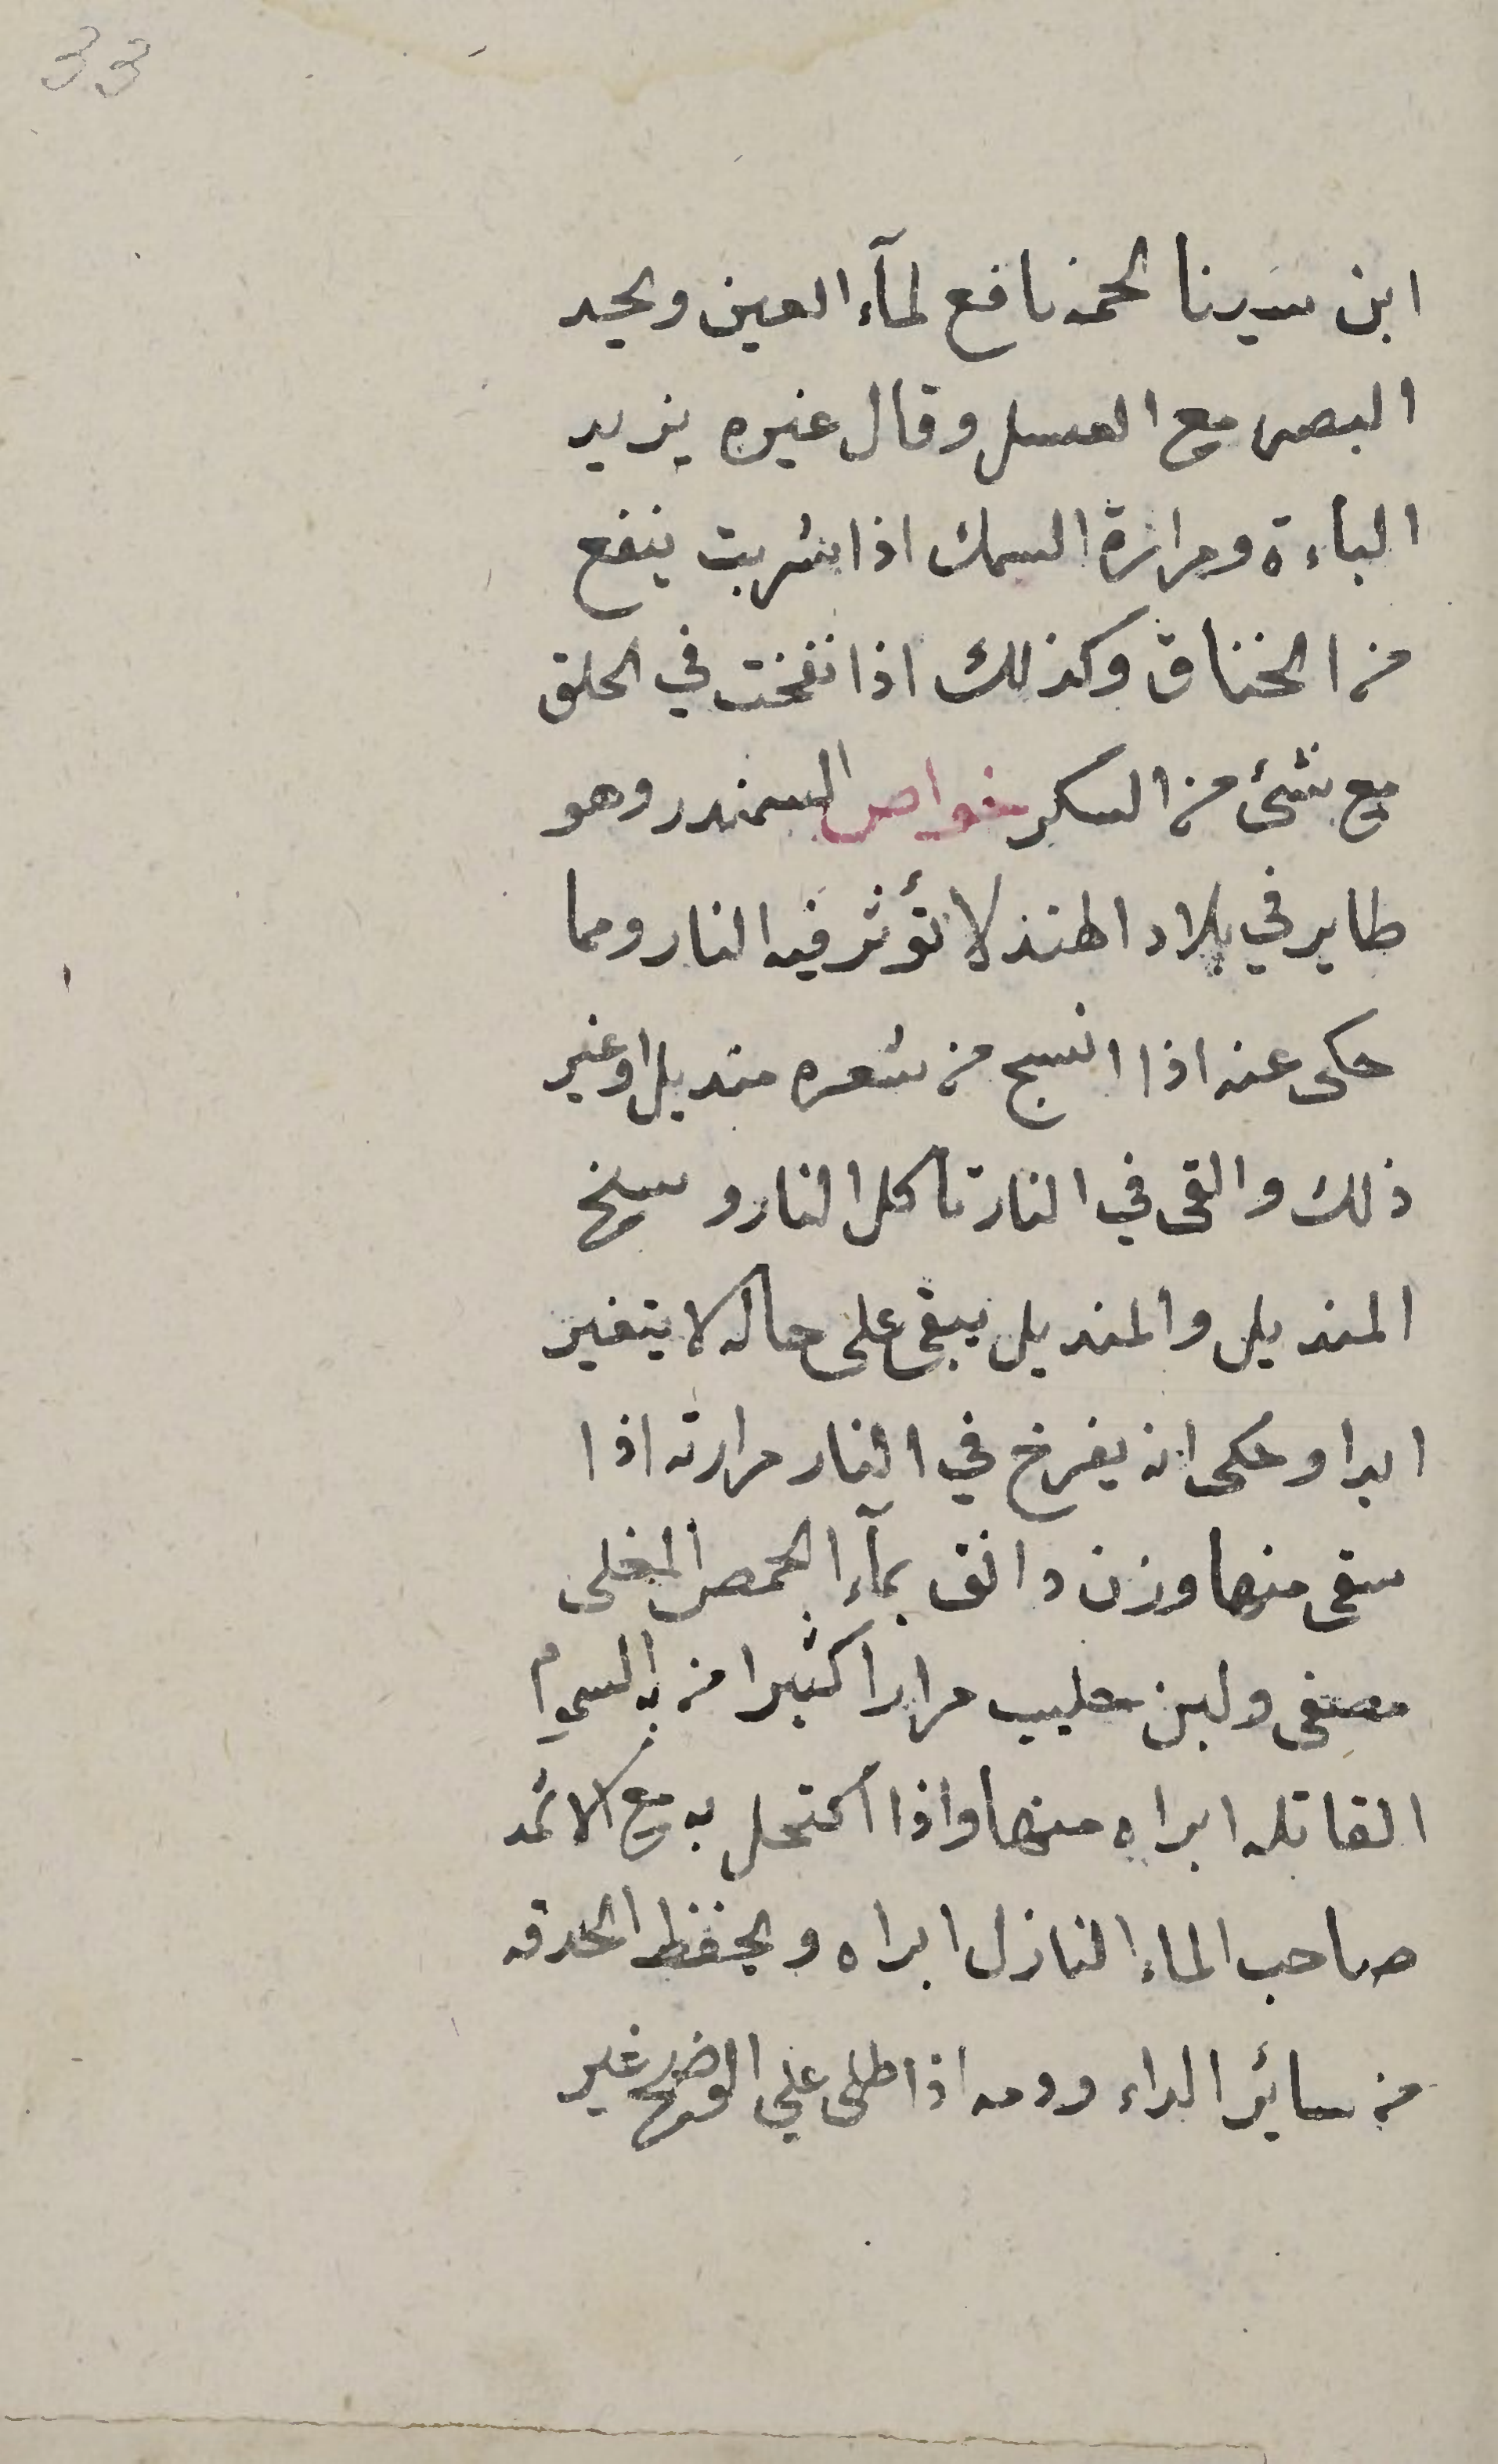 33
ابن سيرنا لحمه نافع لمآء العين ويحد
البصر مع العسل وقال غيره يزيد
الباءة ومرارة السمك اذا شربت ينفع
من الخناق وكذلك اذا نفخت في الحلق
مع شئ من السكر خواص السمندر وهو
طاير في بلاد الهند لا تؤثر فيه النار ومما
حكى عنه اذا انسج من شعره منديل اوغير
ذلك والقى في النار تاكل النار وسخ
المنديل والمنديل يبقى على حاله لا يتغير
ابدا وحكى انه يفرخ في النار مرارته اذا
سقى منها وزن دانق بمآء الحمص المغلى
مصفى ولبن حليب مرارا كثيرا من به السموم
القاتله ابراه منها واذا اكتحل به مع الاثمد
صاحب الماء النازل ابراه ويحفظ الحدقه
من سائر الداء ودمه اذا طلى علي الوضح غير